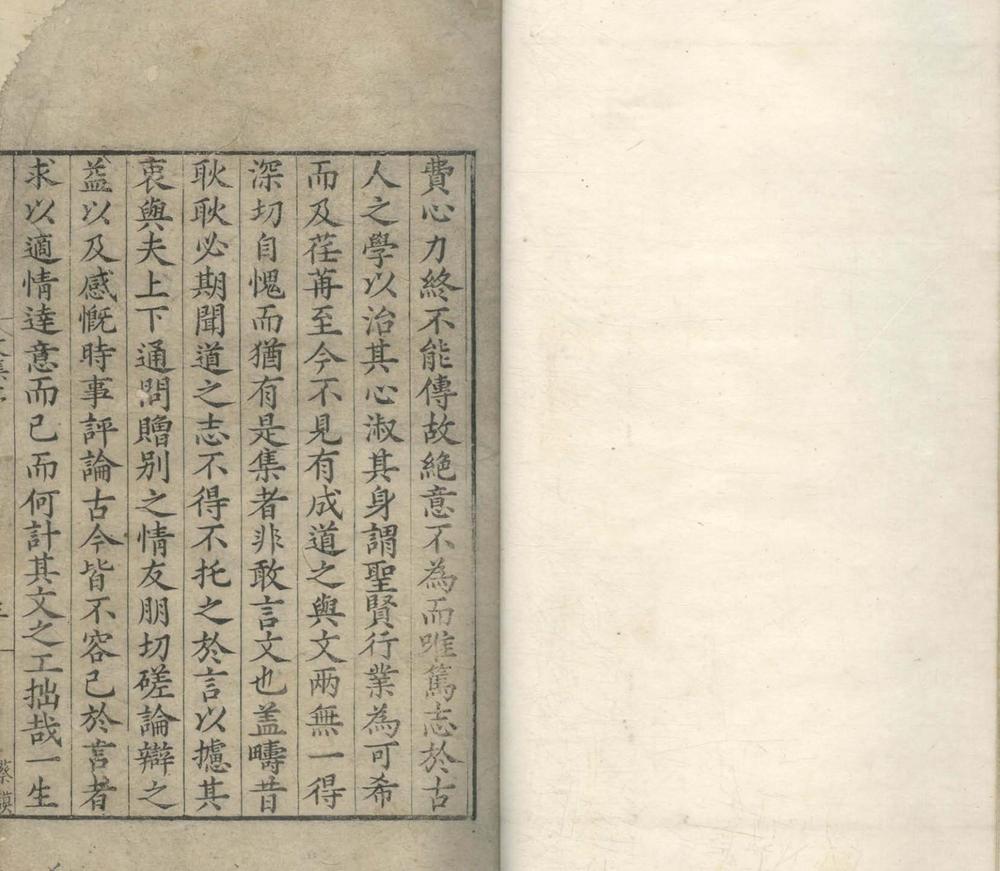 費心力終不能傳故絶意不為而唯篤志於古
人之學以治其心淑其身謂聖賢行業為可希
而及荏苒至今不見有成道之與文兩無一得
深切自愧而猶有是集者非敢言文也盖疇昔
耿耿必期聞道之志不得不托之於言以攄其
衷與夫上下通問贈别之情友朋切磋論辯之
益以及感慨時事評論古今皆不容已於言者
求以適情逹意而已而何計其文之工拙哉一生